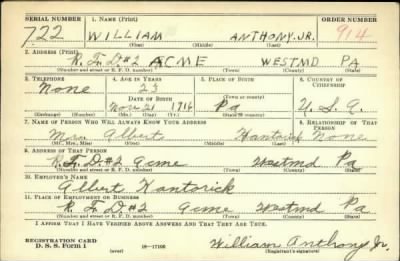 SERIAL NUMBER 1. NAME (Print) ORDER NUMBER
722 WILLIAM ANTHONY.JR. 914
(First) (Middle) (Last)
2. ADDRESS (Print)
R.F.D.#2 ACME WESTMD PA
(Number and street or R. F. D. number) (Town) (County) (State)
3. TELEPHONE 4. AGE IN YEARS 5. PLACE OF BIRTH 6. COUNTRY OF CITIZENSHIP
None 23 Pa U.S.A.
DATE OF BIRTH (Town or county)
Nov. 21 1916
(Exchange) (Number) (Mo.) (Day) (Yr.) (State or country)
7. NAME OF PERSON WHO WILL ALWAYS KNOW YOUR ADDRESS 8. RELATIONSHIP OF THAT PERSON
Mrs. Albert Hantorick None
(Mr., Mrs., Miss) (First) (Middle) (Last)
9. ADDRESS OF THAT PERSON
R.F.D.#2 Acme Westmd Pa
(Number and street or R. F. D. number) (Town) (County) (State)
10. EMPLOYER'S NAME
Albert Hantorick
11. PLACE OF EMPLOYMENT OR BUSINESS
R.F.D.#2 Acme Westmd Pa
(Number and street or R. F. D. number) (Town) (County) (State)
I AFFIRM THAT I HAVE VERIFIED ABOVE ANSWERS AND THAT THEY ARE TRUE.
REGISTRATION CARD
D. S. S. Form 1 (over) 16-17105 William Anthony Jr.
(Registrant's signature)